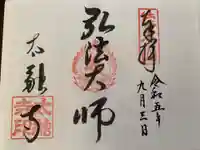 奉拝
令和五年
九月三日
弘法大師
太融寺